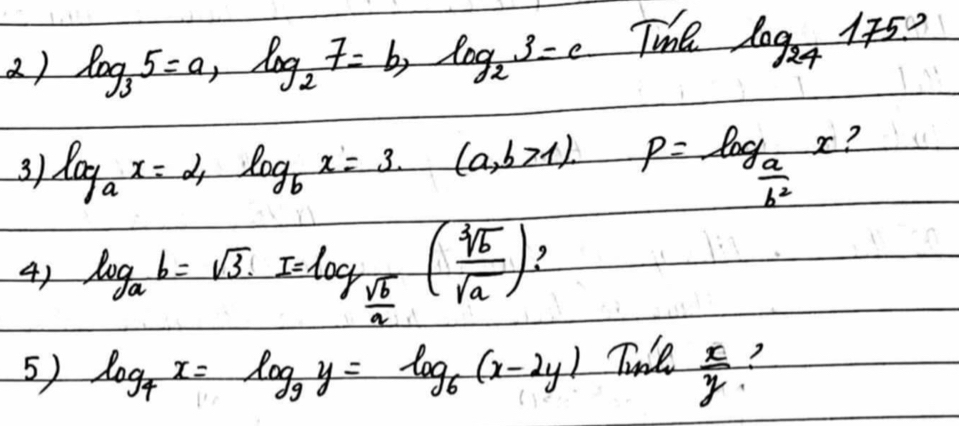 2) log₃ 5 = a, log₂ 7 = b, log₂ 3 = c. Tính log₂₄ 175?
3) logₐ x = 2, log_b x = 3. (a, b > 1). P = log_(a/b²) x?
4) logₐ b = √3. I = log_(√b/a) (∛b/√a)?
5) log₄ x = log₉ y = log₆ (x - 2y) Tính x/y?